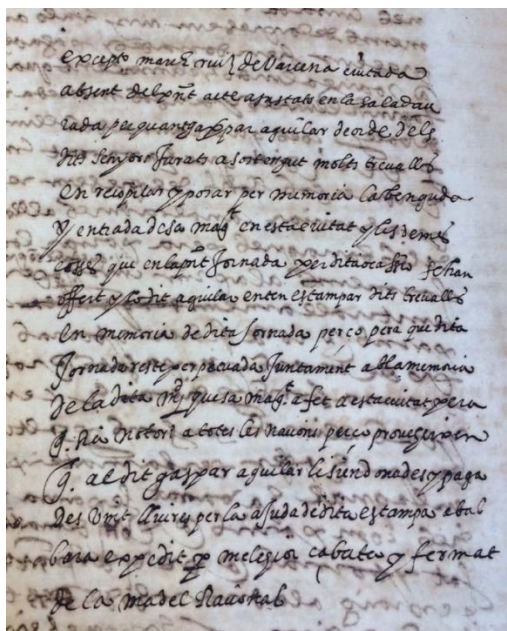 excepto march ruiz de barcena ciutada
absent del pnt acte ajustats en la sala dau
rada per quant gaspar aguilar de orde dels
dits senyors Jurats a sostengut molts treualls
en recopilar y posar per memoria la benguda
y entrada de sa magt en esta ciutat y les demes
coses que en la pnt Jornada y en dita ocasio se han
offert y lo dit aguilar enten estampar dits treualls
en memoria de dita Jornada perço pera que dita
Jornada reste perpetuada Juntament ab la memoria
de la dita que sa magt a fet a esta ciutat y pera
q. sia notori a totes les nacions perço proueheixen
q. al dit gaspar aguilar li sien donades y paga
des vint lliures per la ajuda de dita estampa ab al
bara expedit per melchior çabata y fermat
de la ma del Racional